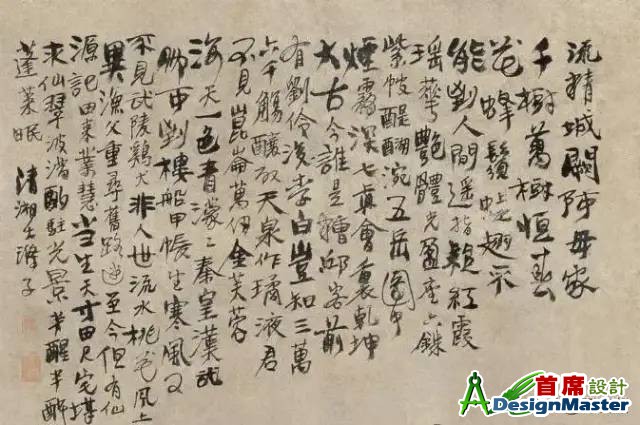 流精城闕降母家
千樹萬樹恒春
花蜂鬚蝶翅不
能到人間遥指紅霞
瑶華艷體光盈座六銖
紫帔醍醐涴五岳圖中
煙霧深七真會裏乾坤
大古今誰是糟邱客前
有劉伶後李白豈知三萬
六千觴釀取天泉作璚液君
不見崑崙萬仞金芙蓉
海天一色青濛々秦皇漢武
那可到樓船甲帳生寒風又
不見武陵鷄犬非人世流水桃花風土
異漁父重尋舊路迷至今但有仙
源記由來業慧當生天寸田尺宅堪
求仙翠波滿酌駐光景半醒半醉
蓬萊眠 清湘大滌子
首席設計
DesignMaster